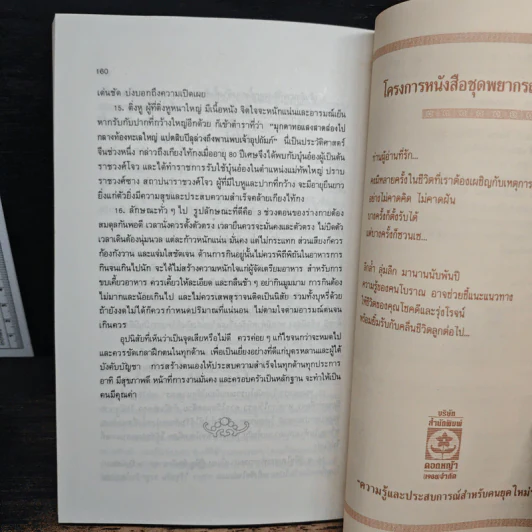 160
เด่นชัด บ่งบอกถึงความเปิดเผย
15. ติ่งหู ผู้ที่ติ่งหูหนาใหญ่ มีเนื้อหนัง จิตใจจะหนักแน่นและอารมณ์เย็น
หากรับกับปากที่กว้างใหญ่อีกด้วย ก็เข้าตำราที่ว่า "มุกดาทอแสงสาดส่องไป
กลางท้องทะเลใหญ่ แปดสิบปีลุล่วงถึงพานพบเจ้าอุปถัมภ์" นี่เป็นประวัติศาสตร์
จีนช่วงหนึ่ง กล่าวถึงเกียงไท้กงเมื่ออายุ 80 ปีเศษจึงได้พบกับบุ๋นอ๋องผู้เป็นต้น
ราชวงศ์โจว และได้ทำราชการรับใช้บุ๋นอ๋องในตำแหน่งแม่ทัพใหญ่ ปราบ
ราชวงศ์ซาง สถาปนาราชวงศ์โจว ผู้ที่มีใบหูและปากที่กว้าง จะมีอายุยืนยาว
ยิ่งแก่ตัวยิ่งมีความสุขและประสบความสำเร็จคล้ายเกียงไท้กง
16. ลักษณะทั่ว ๆ ไป รูปลักษณะที่ดีคือ 3 ช่วงตอนของร่างกายต้อง
สมดุลกันพอดี เวลานั่งควรตั้งตัวตรง เวลายืนควรจะมั่นคงและตัวตรง ไม่บิดตัว
เวลาเดินต้องนุ่มนวล แต่ละก้าวหนักแน่น มั่นคง แต่ไม่กระแทก ส่วนเสียงก็ควร
ก้องกังวาน และแจ่มใสชัดเจน ด้านการกินอยู่นั้นไม่ควรพิถีพิถันในอาหาร
การกินจนเกินไปนัก จะได้ไม่สร้างความหนักใจแก่ผู้จัดเตรียมอาหาร สำหรับการ
ขบเคี้ยวอาหาร ควรเคี้ยวให้ละเอียด และกลืนช้า ๆ อย่ากินมูมมาม การกินต้อง
ไม่มากและน้อยเกินไป และไม่ควรเสพสุราจนติดเป็นนิสัย รวมทั้งบุหรี่ด้วย
ถ้ายังงดไม่ได้ก็ควรกำหนดปริมาณที่แน่นอน ไม่ตามใจตามอารมณ์ตนจน
เกินควร
อุปนิสัยที่เห็นว่าเป็นจุดเสียหรือไม่ดี ควรค่อย ๆ แก้ไขจนกว่าจะหมดไป
และควรขัดเกลาฝึกตนในทุกด้าน เพื่อเป็นเยี่ยงอย่างที่ดีแก่บุตรหลานและผู้ใต้
บังคับบัญชา การสร้างตนเองให้ประสบความสำเร็จในทุกด้านทุกประการ
อาทิ มีสุขภาพดี หน้าที่การงานมั่นคง และครอบครัวเป็นหลักฐาน จะทำให้เป็น
คนมีคุณค่า
โครงการหนังสือชุดพยากรณ์
ท่านผู้อ่านที่รัก...
คงมีหลายครั้งในชีวิตที่เราต้องเผชิญกับเหตุการ
อย่างไม่คาดคิด ไม่คาดฝัน
บางครั้งก็ตั้งรับได้
แต่บางครั้งก็ชวนเซ...
ลึกล้ำ ลุ่มลึก มานานนับพันปี
ความรู้ของคนโบราณ อาจช่วยชี้แนะแนวทาง
ให้ชีวิตของคุณโชคดีและรุ่งโรจน์
พร้อมยิ้มรับกับคลื่นชีวิตลูกต่อไป...
บริษัท
สำนักพิมพ์
ดอกหญ้า
"ความรู้และประสบการณ์สำหรับคนยุคใหม่"